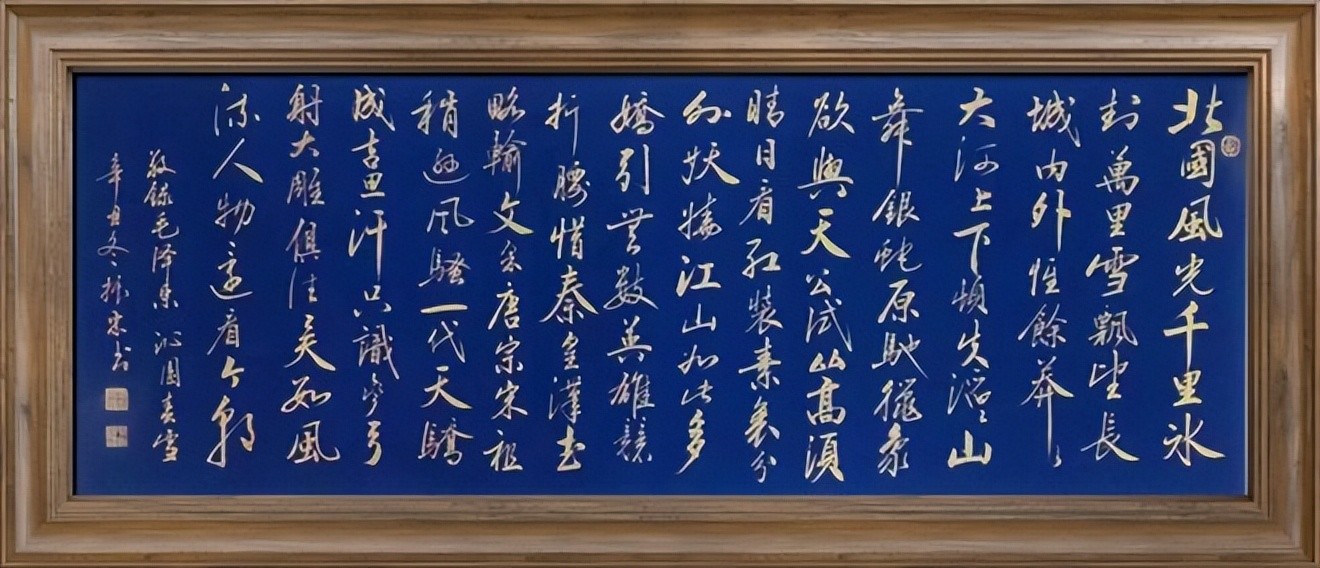 北國風光千里冰
封萬里雪飄望長
城内外惟餘莽〻
大河上下頓失滔〻山
舞銀蛇原馳蠟象
欲與天公試比高須
晴日看紅裝素裹分
外妖嬈江山如此多
嬌引無數英雄競
折腰惜秦皇漢武
略輸文采唐宗宋祖
稍遜風騷一代天驕
成吉思汗只識彎弓
射大雕俱往矣數風
流人物還看今朝
敬錄毛澤東 沁園春雪
辛丑冬振書